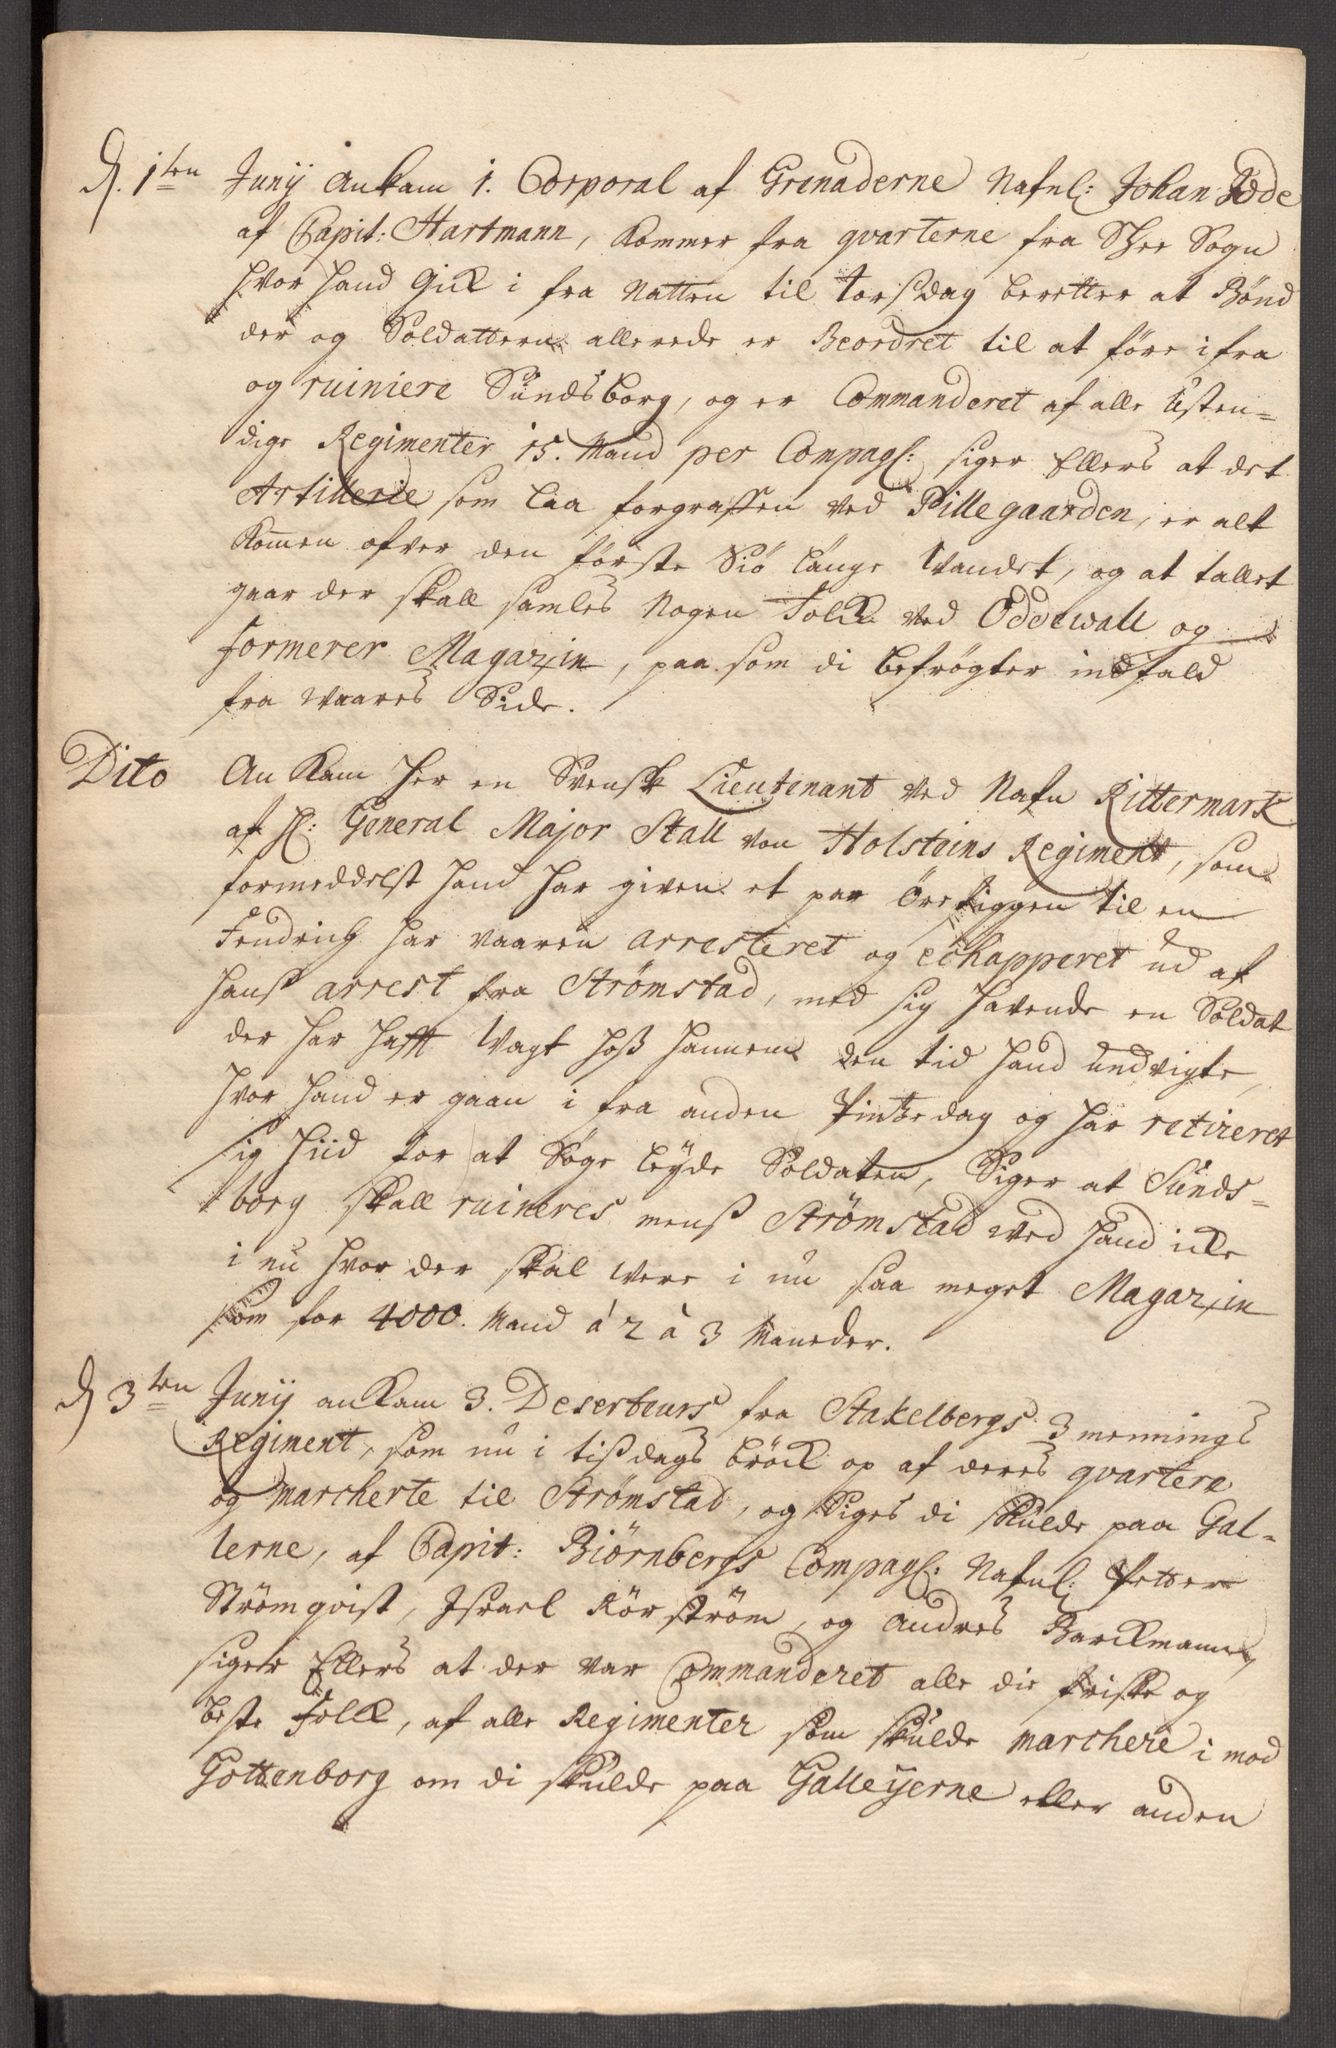 d. 1ten Junij ankam 1. Corporal af Grenaderne Nafnl: Johan Jode
af Capit: Hartmann, kommer fra qvarterne fra Skee Sogn
hvor hand gik i fra Natten til torsdag beretter at Bönd
der og Soldattern allerede er Beordret til at före ifra
og ruiniere Sundsborg, og er Commanderet af alle Usten=
dige Regimenter 15. Mand per Compagl: siger Ellers at det
Artillerie som laa forgrafſen ved Pillegaarden, er alt
kom̄en ofver den förste Siö länge Vandet, og at tallet
gaar der skall samles Nogen Folck ved Oddewall og
formerer Magazin, paa som di befrögter indfald
fra waares Side.
Dito An kam her en Svensk Lieutenant ved Nafn Rittermark
af H: General Major Stall von Holsteins Regiment, som
formeddelst hand har given et par örefiggen til en
Fendrich har vaaren arresteret og echapperet ud af
hans arrest fra Strømstad, med sig havende en Soldat
der har hafft Vagt hoß hannem den tid hand undvigte,
hvor hand er gaan i fra anden Pintzedag og har retireret
sig hiid for at Söge leyde Soldaten, Siger at Sunds=
borg skall ruineres menß Strømstad ved hand icke
i nu hvor der skal were i nu saa meget Magazin
som for 4000. Mand á 2 à 3 Maneder.
d 3ten Junij ankam 3. Deserteurs fra Stakelbergs 3 mennings
Regiment, som nu i tißdags bröck op af deres qvartere
og marcherte til Strømstad, og Siges di skulde paa Gal=
lerne, af Capit: Biørnbergs Compagl: Nafnl: Petter
Strømqvist, Israel Körström, og Andres Barckmann,
siger Ellers at der var Commanderet alle die friske og
beste Folck, af alle Regimenter som skulde marchere i mod
Gottenborg om di skulde paa Galleyerne eller anden